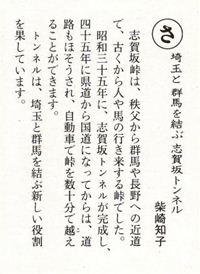 さ
埼玉と群馬を結ぶ志賀坂トンネル
柴崎知子
志賀坂峠は、秩父から群馬や長野への近道
で、古くから人や馬の行き来する峠でした。
昭和三十五年に、志賀坂トンネルが完成し、
四十五年に県道から国道になってからは、道
路もほそうされ、自動車で峠を数十分で越え
ることができます。
トンネルは、埼玉と群馬を結ぶ新しい役割
を果しています。